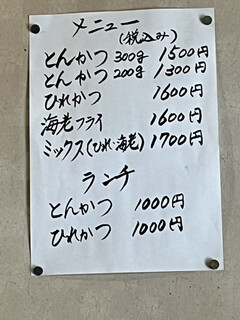 メニュー
(税込み)
とんかつ 300g 1500円
とんかつ 200g 1300円
ひれかつ 1600円
海老フライ 1600円
ミックス(ひれ・海老) 1700円
ランチ
とんかつ 1000円
ひれかつ 1000円